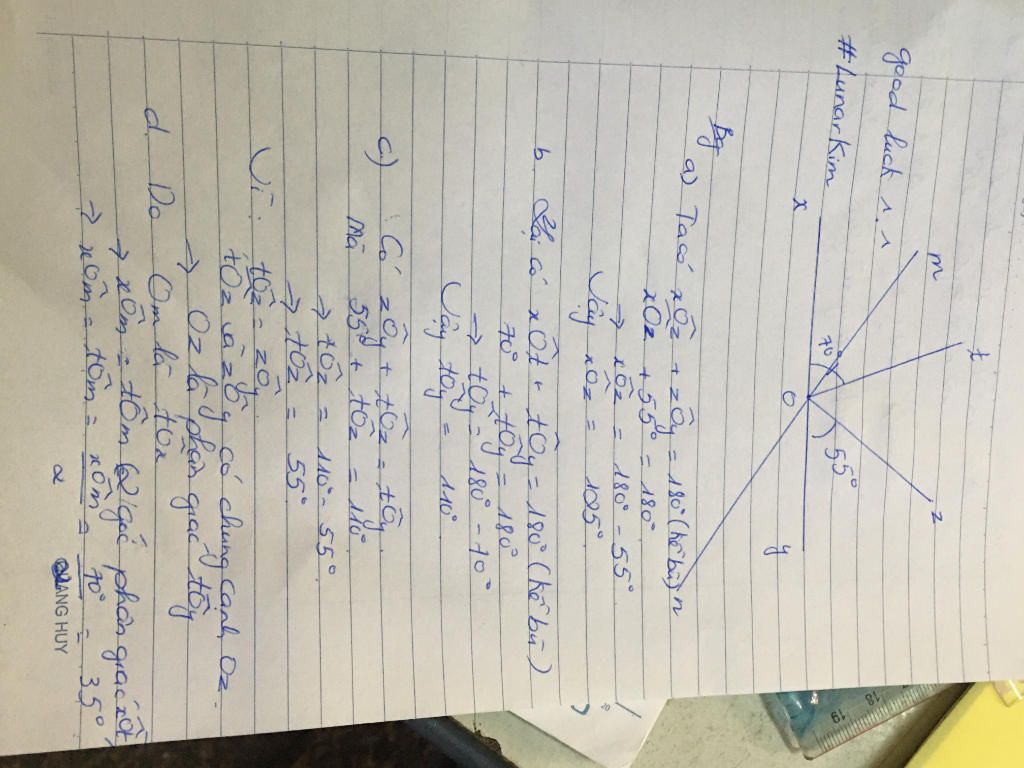 good luck 1.1
#LunarKim
m
t
x
70°
O
55°
z
y
n
Bg
a) Ta có xÔz + zÔy = 180° (kề bù)
xOz + 55° = 180°
→ xÔz = 180° - 55°
Vậy xOz = 125°
b. có xÔt + tÔy = 180° (kề bù)
70° + tÔy = 180°
→ tÔy = 180° - 70°
Vậy tÔy = 110°
c) Có zÔy + tÔz = tÔy
Mà 55° + tÔz = 110°
→ tÔz = 110° - 55°
→ tÔz = 55°
Vì: tÔz = zÔy
tÔz và zÔy có chung cạnh Oz.
→ Oz là phân giác tÔy
d. Do Om là tOx
→ xÔm = tÔm (2 góc phân giác xÔt)
→ xÔm = tÔm = xÔm/2 = 70°/2 = 35°
QUANG HUY